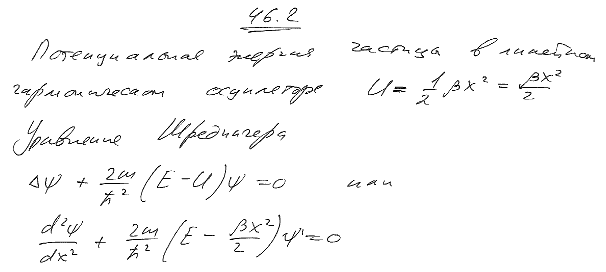 46.2
Потенциальная энергия частицы в линейном
гармоническом осцилляторе U = 1/2 βx² = βx²/2
Уравнение Шредингера
Δψ + 2m/ħ² (E − U)ψ = 0 или
d²ψ/dx² + 2m/ħ² (E − βx²/2)ψ = 0